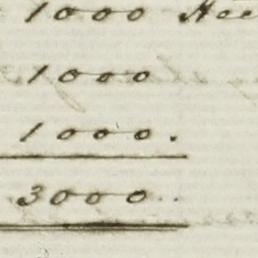 1000
1000
1000.
3000..